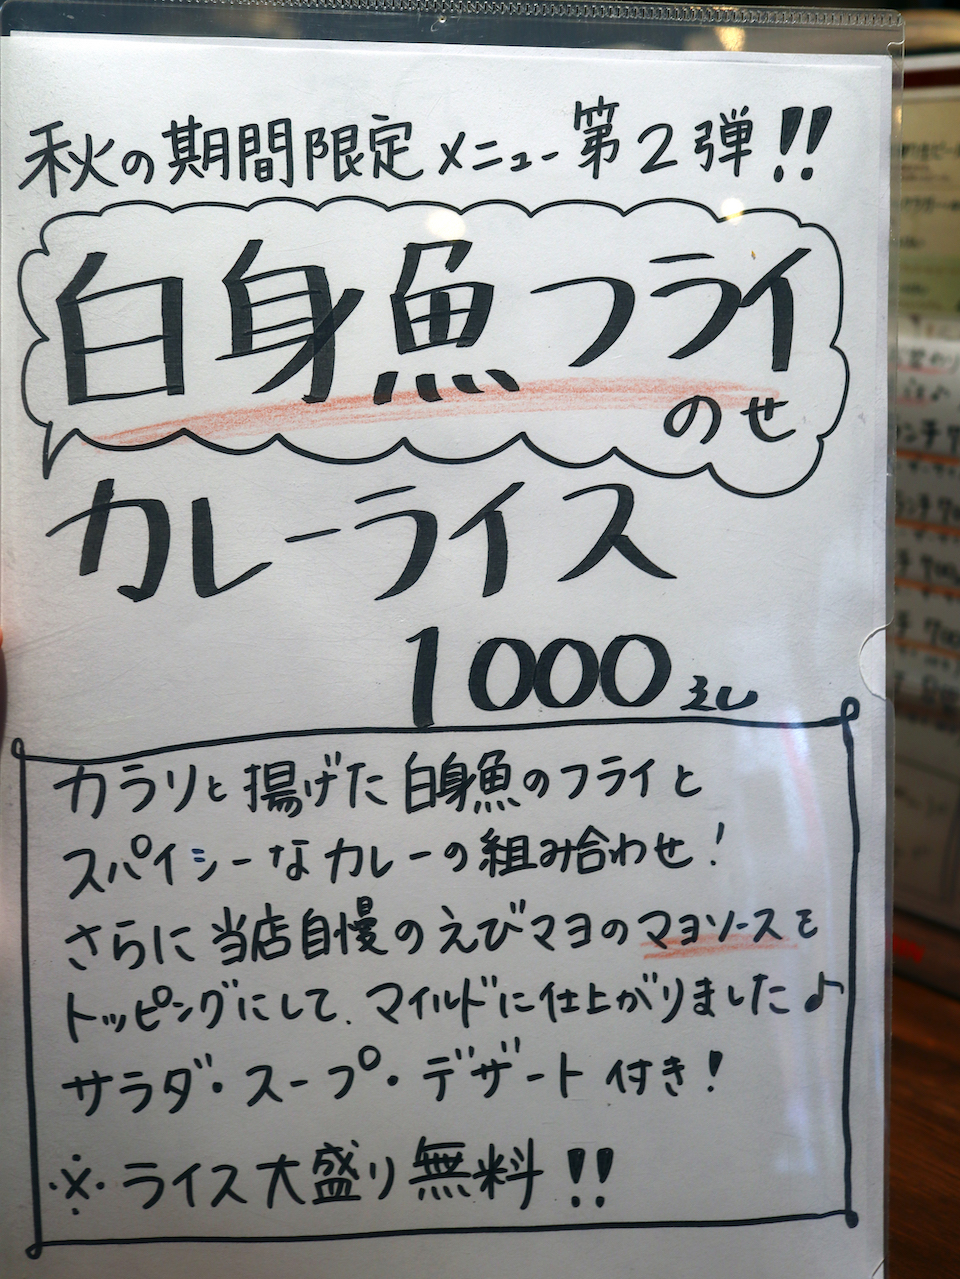 秋の期間限定メニュー第2弾!!
白身魚フライ
のせ
カレーライス
1000
カラリと揚げた白身魚のフライと
スパイシーなカレーの組み合わせ!
さらに当店自慢のえびマヨのマヨソースを
トッピングにして、マイルドに仕上がりました♪
サラダ・スープ・デザート付き!
※ライス大盛り無料!!